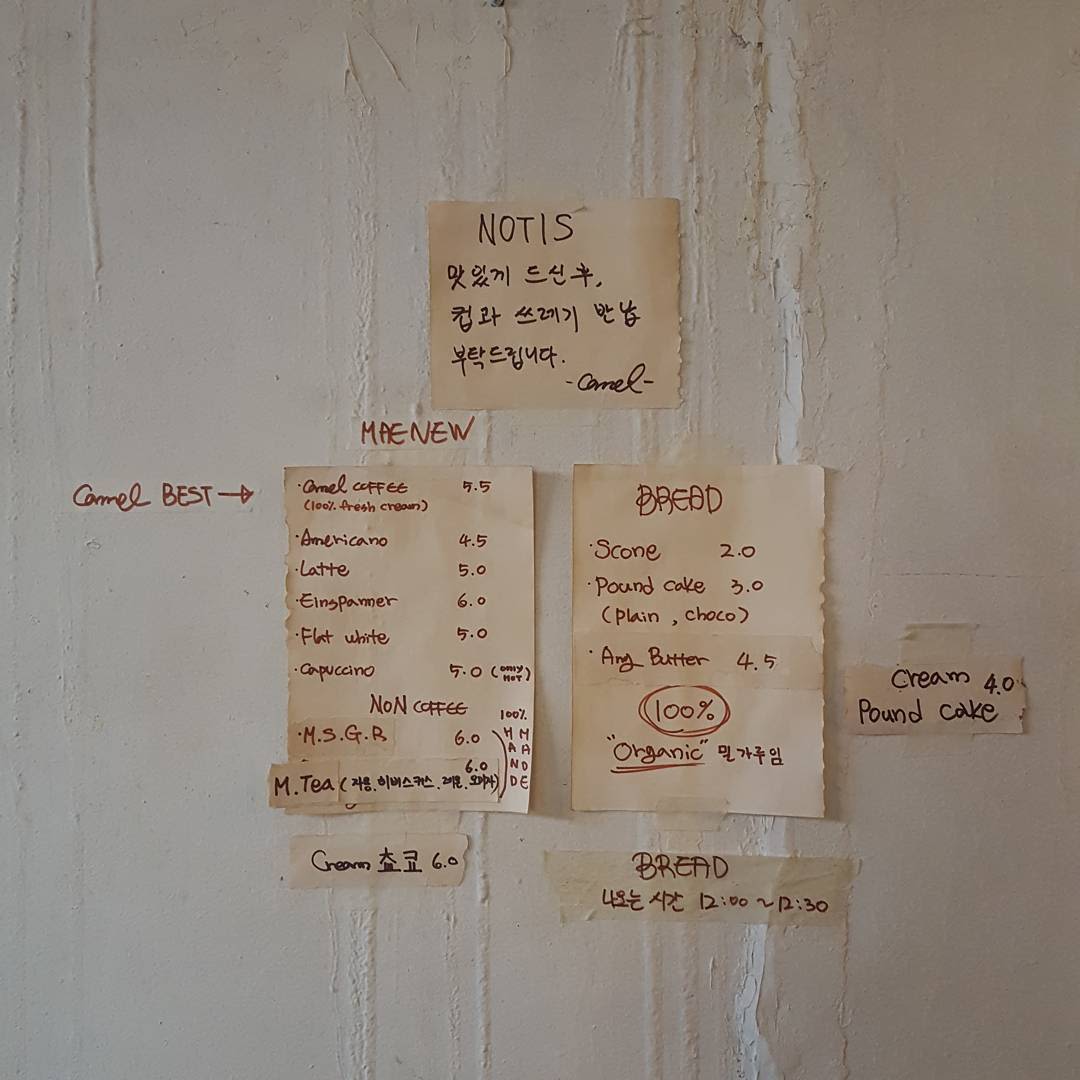 NOTIS
맛있게 드신 후,
컵과 쓰레기 반납
부탁드립니다.
-Camel-
MAENEW
Camel BEST →
·Camel COFFEE 5.5
(100% fresh cream)
·Americano 4.5
·Latte 5.0
·Einspanner 6.0
·Flat white 5.0
·Capuccino 5.0 (only HOT)
NON COFFEE
·M.S.G.R 6.0
100% HAND MADE
6.0
M.Tea (자몽, 히비스커스, 레몬, 오미자)
Cream 쵸코 6.0
BREAD
·Scone 2.0
·Pound cake 3.0
(Plain, choco)
·Ang Butter 4.5
100%
"Organic" 밀가루임
Cream 4.0
Pound cake
BREAD
나오는 시간 12:00 ~ 12:30